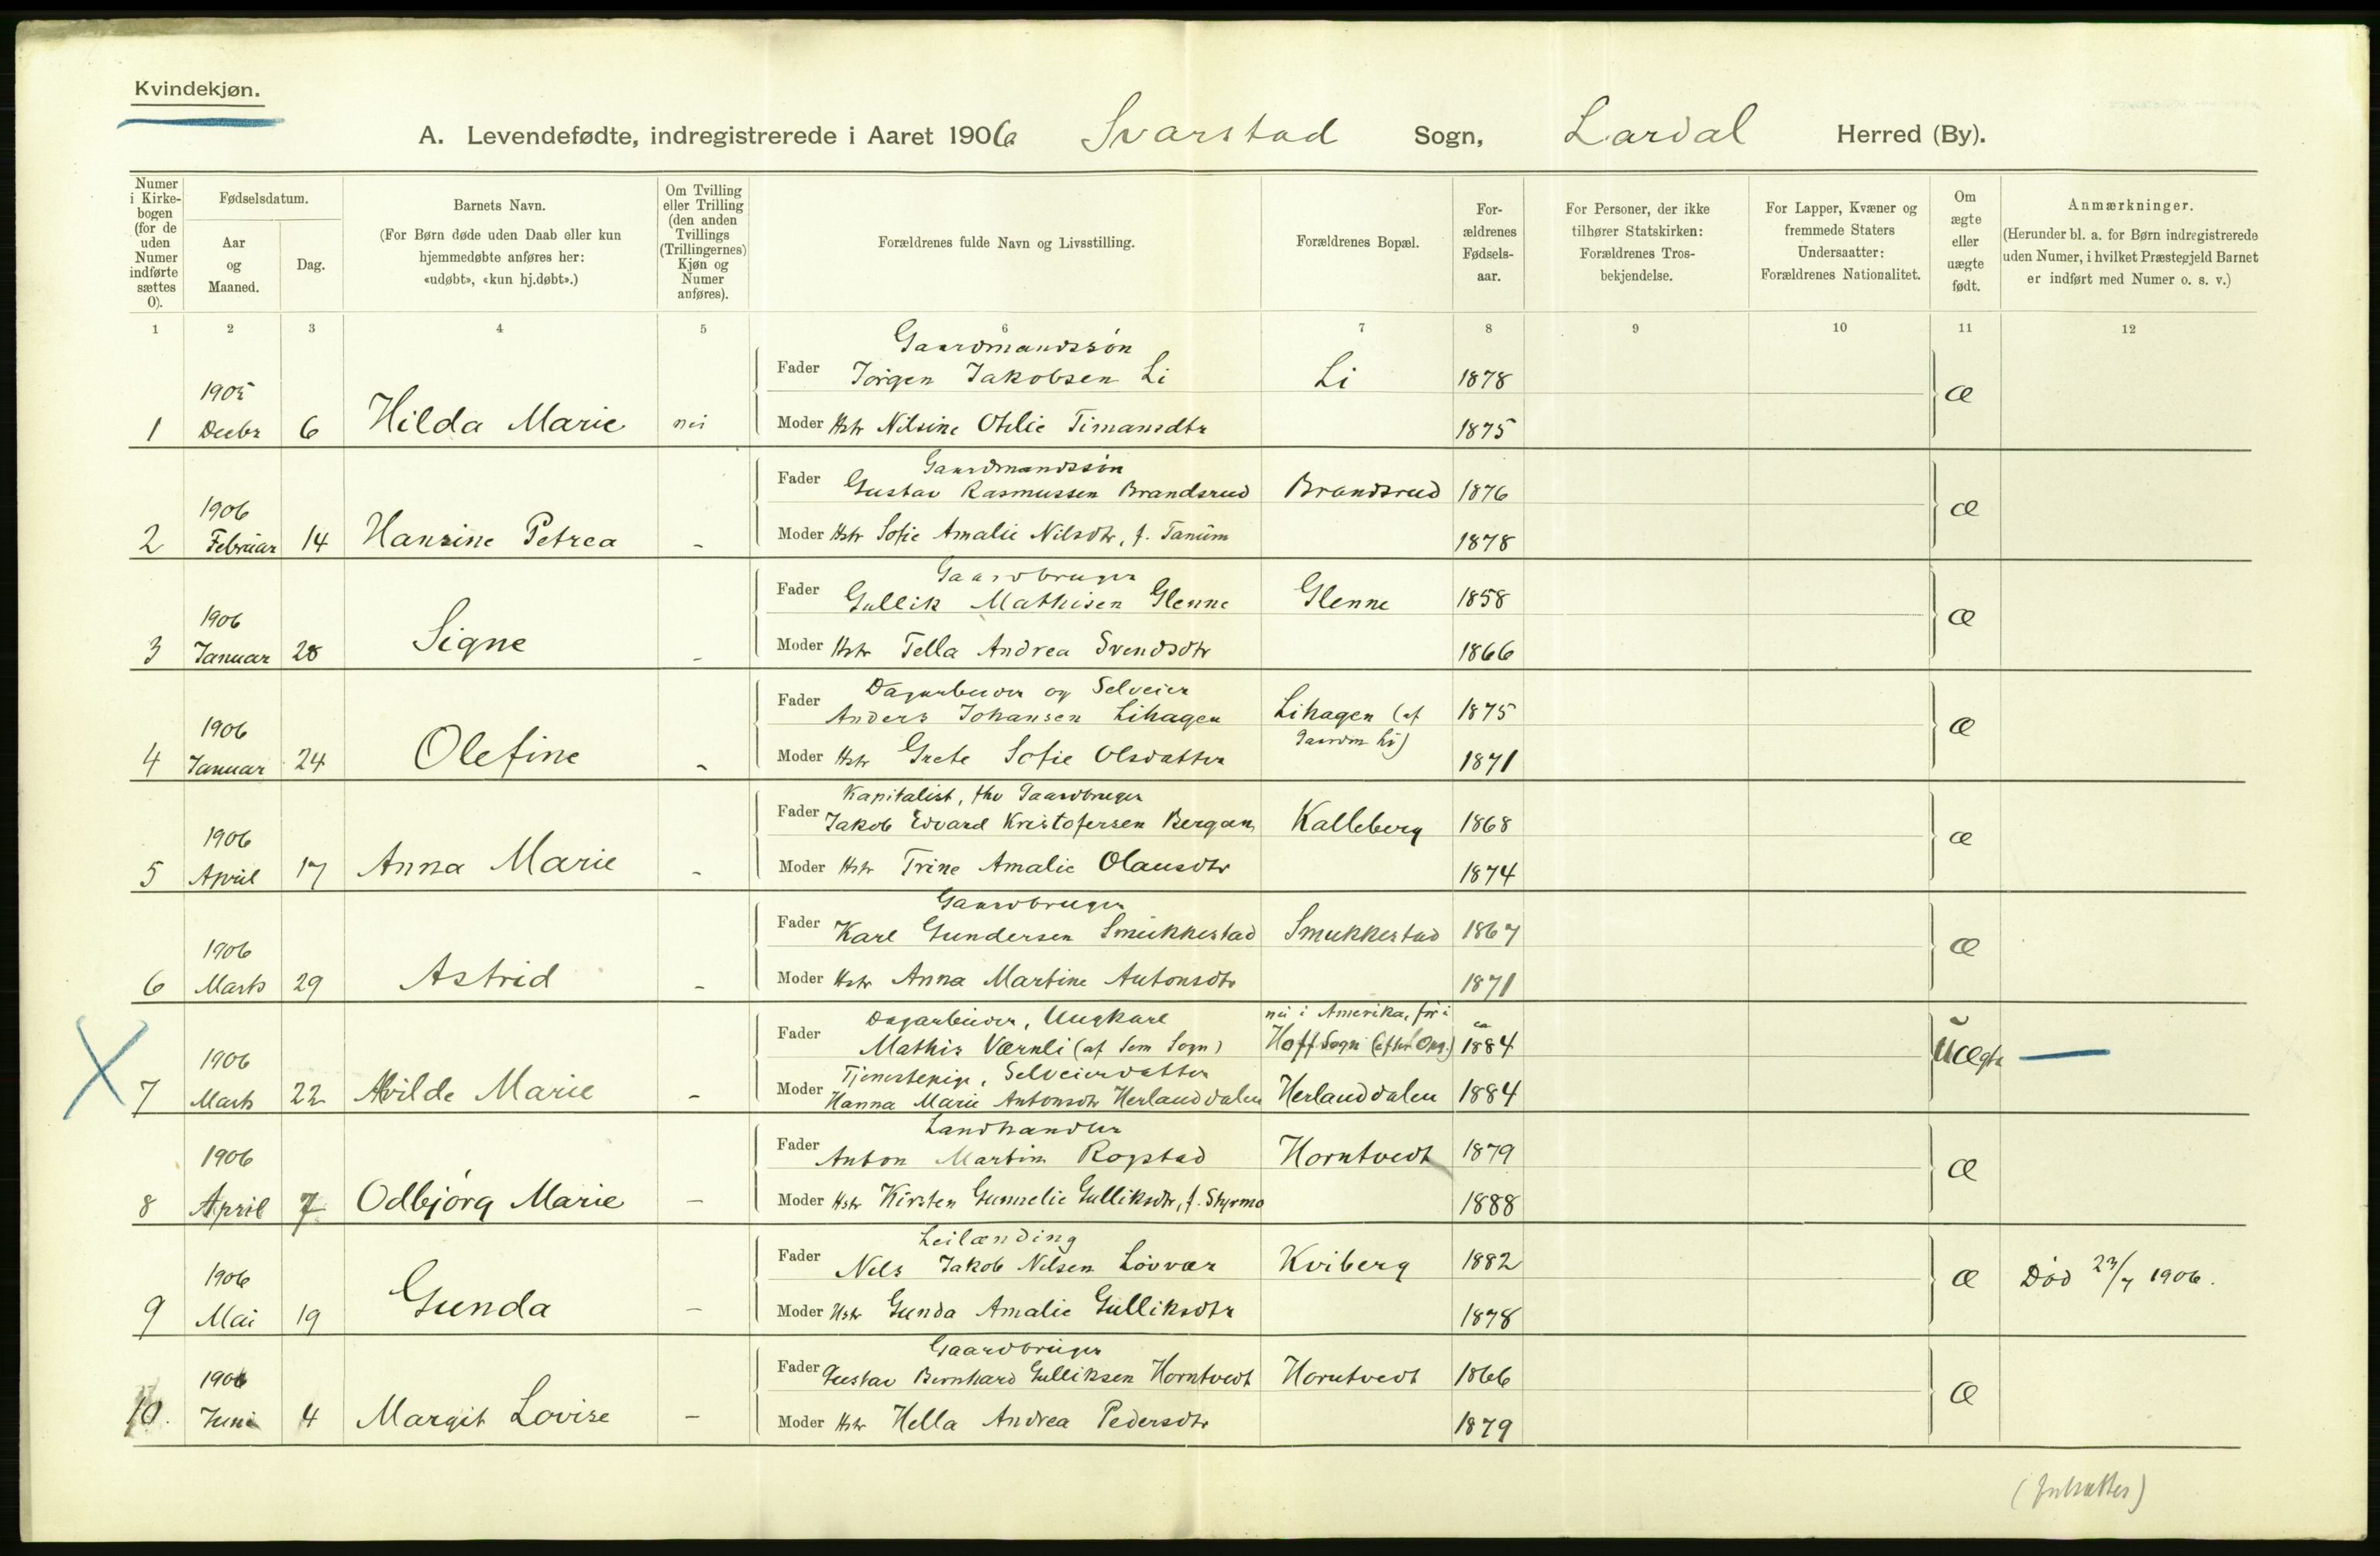 Kvindekjøn.
A. Levendefødte, indregistrerede i Aaret 1906 Svarstad Sogn, Lardal Herred (By).
Numer i Kirkebogen (for de uden Numer indførte sættes 0).
Fødselsdatum.
Aar og Maaned.
Dag.
Barnets Navn.
(For Børn døde uden Daab eller kun hjemmedøbte anføres her: «udøbt», «kun hj.døbt».)
Om Tvilling eller Trilling (den anden Tvillings (Trillingernes) Kjøn og Numer anføres).
Forældrenes fulde Navn og Livsstilling.
Forældrenes Bopæl.
Forældrenes Fødselsaar.
For Personer, der ikke tilhører Statskirken: Forældrenes Trosbekjendelse.
For Lapper, Kvæner og fremmede Staters Undersaatter: Forældrenes Nationalitet.
Om ægte eller uægte født.
Anmærkninger.
(Herunder bl. a. for Børn indregistrerede uden Numer, i hvilket Præstegjeld Barnet er indført med Numer o. s. v.)
1 2 3 4 5 6 7 8 9 10 11 12
Gaardmandssøn
1905 Fader Jørgen Jakobsen Li Li 1878 æ
1 Decbr 6 Hilda Marie nei Moder Hstr Nilsine Otilie 1875
Gaardmandssøn
1906 Fader Gustav Rasmussen Brandsrud Brandsrud 1876 æ
2 Februar 14 Hansine Petrea - Moder Hstr Sofie Amalie Nilsdtr, f. Tanum 1878
Gaardbruger
1906 Fader Gullik Mathisen Glenne Glenne 1858 æ
3 Januar 28 Signe - Moder Hstr Tella Andrea Svendsdtr 1866
Dagarbeider og Selveier
1906 Fader Anders Johansen Lihagen Lihagen (af 1875 æ
Gaardm Li)
4 Januar 24 Olefine - Moder Hstr Grete Sofie Olsdatter 1871
Kapitalist, fhv Gaardbruger
1906 Fader Jakob Edvard Kristofersen Bergan Kalleberg 1868 æ
5 April 17 Anna Marie - Moder Hstr Trine Amalie Olausdtr 1874
Gaardbruger
1906 Fader Karl Gundersen Smukkestad Smukkestad 1867 æ
6 Marts 29 Astrid - Moder Hstr Anna Martine Antonsdtr 1871
Dagarbeider, Ungkarl nu i Amerika, før i
1906 Fader Mathis Værnli (af Sem Sogn) Hoff Sogn (efter Opg.) ca 1884 uægte
Tjenestepige, Selveierdatter
7 Marts 22 Alvilde Marie - Moder Hanna Marie Antonsdtr Herlanddalen Herlanddalen 1884
Landhandler
1906 Fader Anton Martin Rogstad Horntvedt 1879 æ
8 April 7 Odbjørg Marie - Moder Hstr Kirsten Gunnelie Gulliksdtr, f. Styrmo 1888
Leilænding
1906 Fader Nils Jakob Nilsen Løvvar Kviberg 1882 æ Død 23/7 1906.
9 Mai 19 Gunda - Moder Hstr Gunda Amalie Gulliksdtr 1878
Gaardbruger
1906 Fader Gustav Bernhard Gulliksen Horntvedt Horntvedt 1866 æ
10. Juni 4 Margit Lovise - Moder Hstr Hella Andrea Pedersdtr 1879